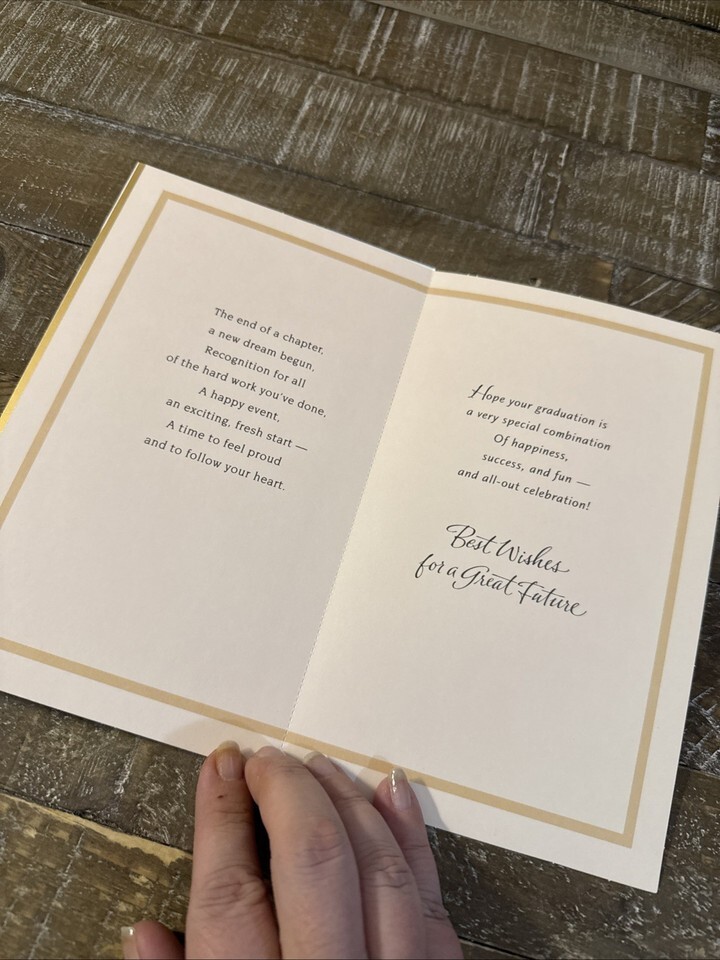 The end of a chapter,
a new dream begun,
Recognition for all
of the hard work you've done,
A happy event,
an exciting, fresh start —
A time to feel proud
and to follow your heart.
Hope your graduation is
a very special combination
Of happiness,
success, and fun —
and all-out celebration!
Best Wishes
for a Great Future